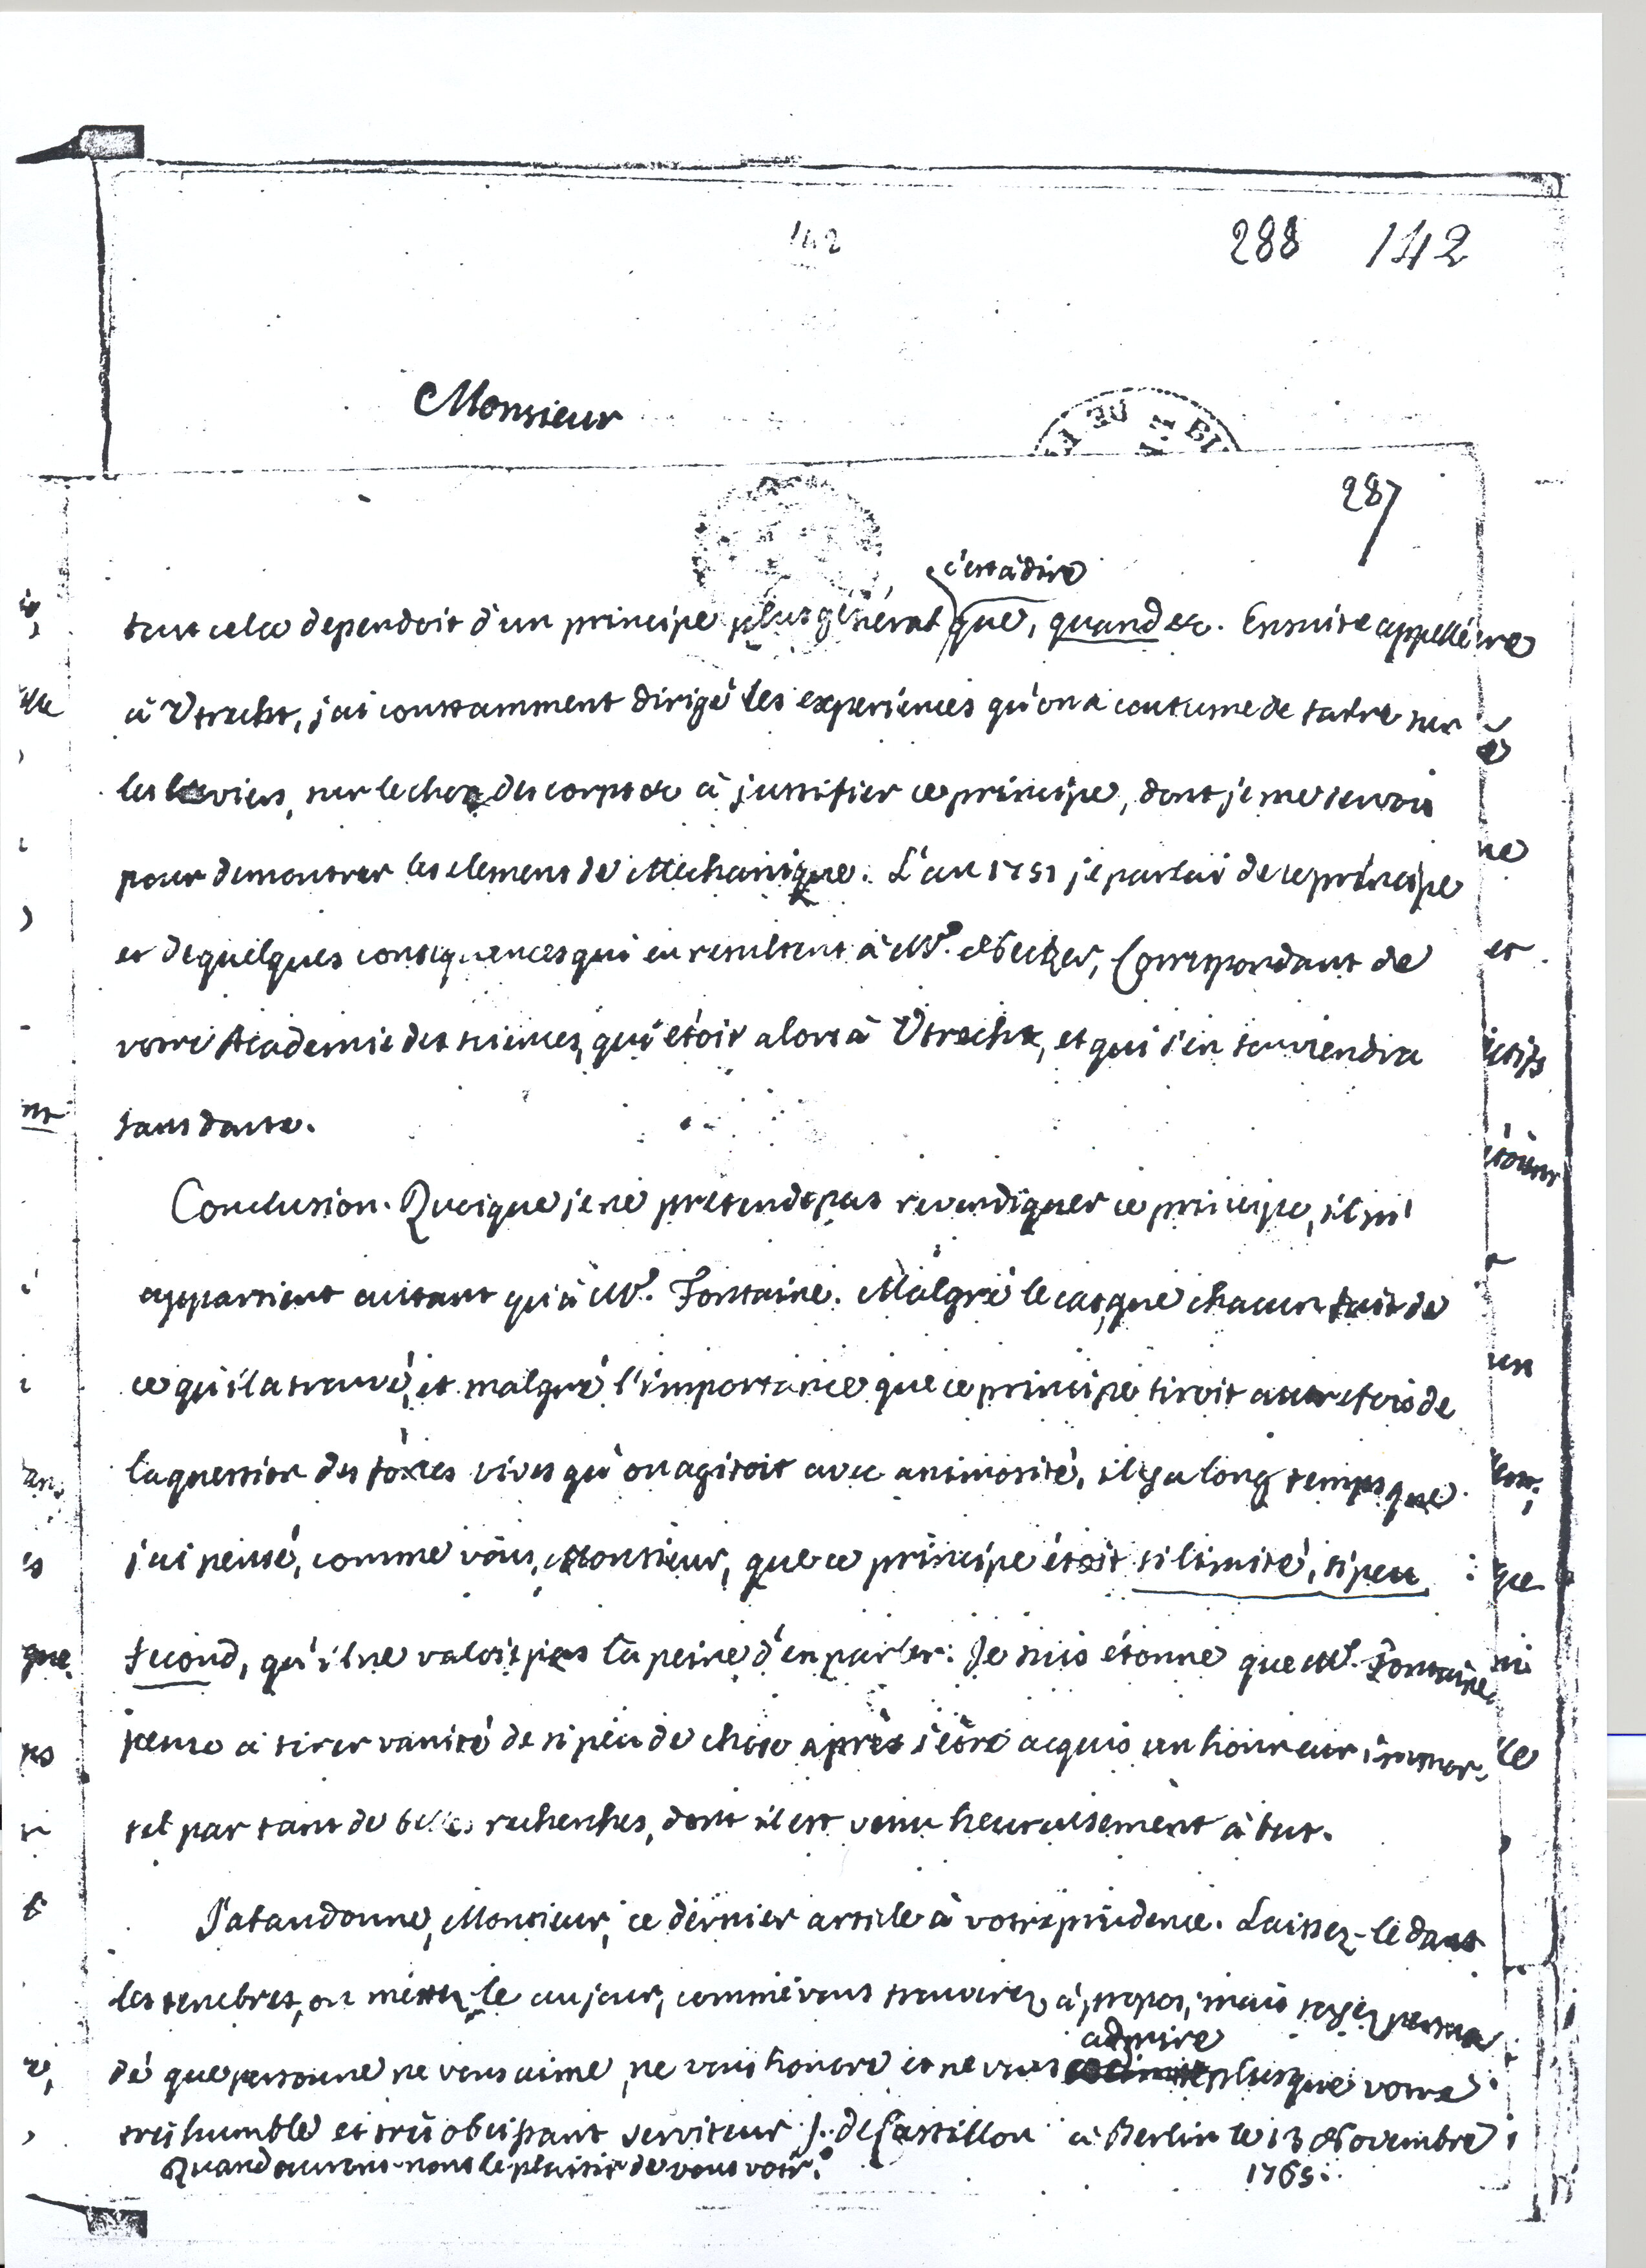 142 288 142
Monsieur
287
c'est à dire
tout cela dependoit d'un principe plus général que, quand &c. Ensuite appellé
à Utrecht, j'ai constamment dirigé les experiences qu'on a coutume de faire sur
les leviers, sur le choc des corps &c à justifier ce principe, dont je me servois
pour demontrer les elemens de Mechanique. L'an 1751 je parlai de ce principe
et de quelques consequences qui en resultent à Mr. Necker, Correspondant de
votre Academie des sciences, qui étoit alors à Utrecht, et qui s'en souviendra
sans doute.
Conclusion. Quoique je ne prétende pas revendiquer ce principe, il m'
appartient autant qu'à Mr. Fontaine. Malgré le cas que chacun fait de
ce qu'il a trouvé, et malgré l'importance que ce principe tiroit autrefois de
la question des forces vives qu'on agitoit avec animosité, il y a long temps que
j'ai pensé, comme vous, Monsieur, que ce principe étoit si limité, si peu
fécond, qu'il ne valoit pas la peine d'en parler. Je suis étonné que Mr. Fontaine
pense à tirer vanité de si peu de chose après s'être acquis un honneur immor-
tel par tant de belles recherches, dont il est venu heureusement à but.
J'abandonne, Monsieur, ce dernier article à votre prudence. Laissez-le dans
les tenebres, ou mettez-le au jour, comme vous trouverez à propos; mais soyez persua
admire
dé que personne ne vous aime, ne vous honore et ne vous plus que votre
très humble et très obeissant serviteur J. de Castillon à Berlin le 13 Novembre
Quand aurons-nous le plaisir de vous voir? 1765.